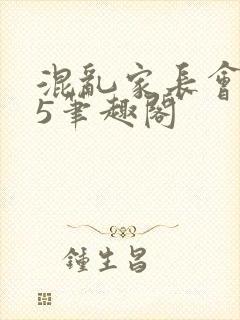 混亂家長會
5筆趣閣
鍾生昌